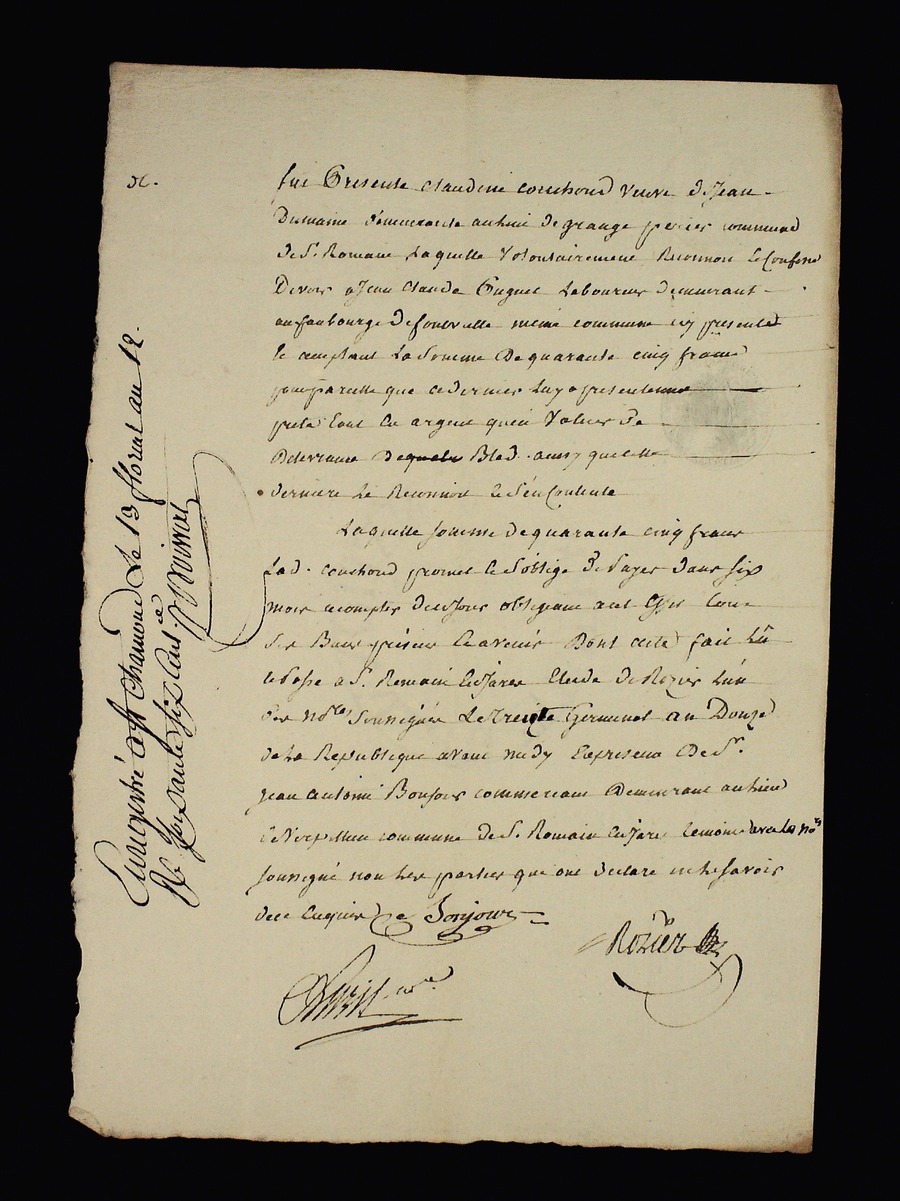 fut Présente Claudine couchoud veuve de Jean
Dumaine demeurante au lieu de grange perier commune
de St. Romain Laquelle volontairement Reconnoi et Confesse
Devoir a Jean Claude Laboureur demeurant
au faubourg de meme commune icy presente
la somme De quarante cinq francs
pour pareille que ce dernier luy a presentement
prete tout en argent qu'en valeur de
Delivrance de Bled. ainsy que cette
derniere Le Reconnoit et s'en contente
Laquelle somme de quarante cinq francs
Lad. couchoud promet et s'oblige De Payer dans six
mois a compter de ce jour obligeant a cet effet tous
ses Biens présens et avenir Dont acte fait Lû
et Passé a St. Romain en Jarez Etude de Rozier L'un
des nores. soussignés Le treize Germinal an Douze
de La Republique avant midy En presence De Sr.
Jean Antoine Bonjour commercant Demeurant au lieu
commune de St. Romain en Jarez temoin avec les nores
soussigné non Les parties qui ont déclaré ne le savoir
de ce enquis
Bonjour
Rozier
Enregistré a St. Chamond Le 13 floréal an 12.
Rç. soixante six cent.